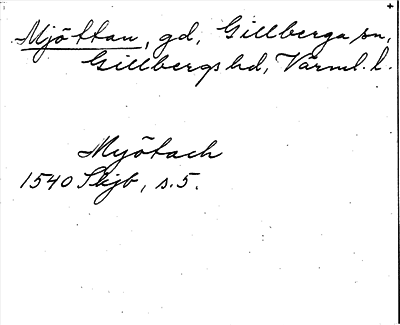 Mjöttan, gd, Gillberga sn,
Gillbergs hd, Värml. l.
Myötach
1540 Skjb, s. 5.